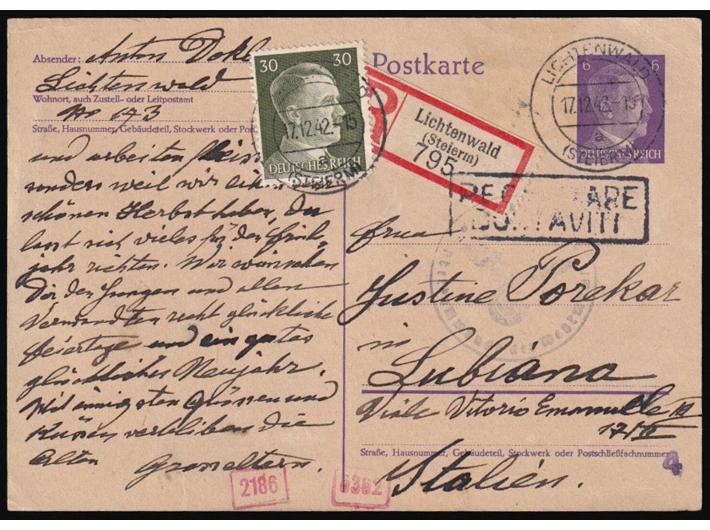 Absender: Anton Dokl
Lichtenwald
Wohnort, auch Zustell- oder Leitpostamt
No 143
Straße, Hausnummer, Gebäudeteil, Stockwerk oder Post
und arbeiten
sonders weil wir
schönen Herbst haben, da
lasst sich vieles für das Früh-
jahr richten. Wir wünschen
Dir den Jungen und allen
Verwandten recht glückliche
Feiertage und ein gutes
glückliches Neujahr.
Mit innigsten Grüssen und
Küssen verbleiben die
alten Grosseltern.
30 30
DEUTSCHES REICH
17.12.42.-15
a
(STEIERM)
Postkarte
Lichtenwald
(Steierm)
795
LICHTENWALD
17.12.42.-15
a
(STEIERM)
6 6
REICH
Frau
Justine Porekar
in
Lubiana
Viale Vitorio Emanuele III
Straße, Hausnummer, Gebäudeteil, Stockwerk oder Postschließfachnummer
Italien.
4
2186